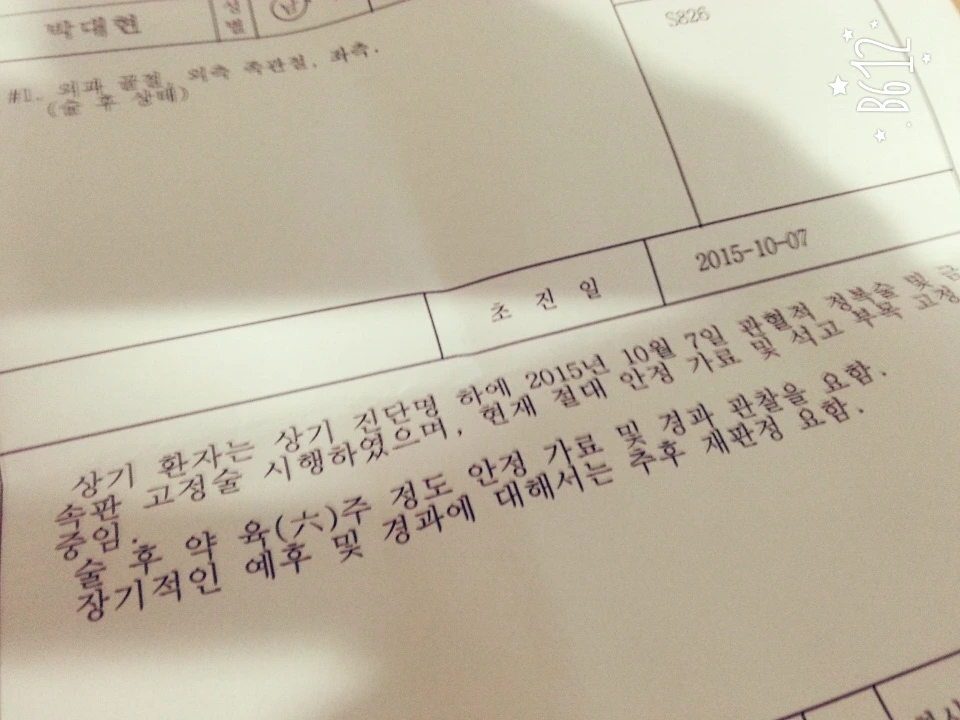 박대현 성별 남
S826
B612
#1. 외과 골절, 외측 족관절, 좌측.
(술 후 상태)
초 진 일 2015-10-07
상기 환자는 상기 진단명 하에 2015년 10월 7일 관혈적 정복술 및 금
속판 고정술 시행하였으며, 현재 절대 안정 가료 및 석고 부목 고정
중임.
술 후 약 육(六)주 정도 안정 가료 및 경과 관찰을 요함.
장기적인 예후 및 경과에 대해서는 추후 재판정 요함.